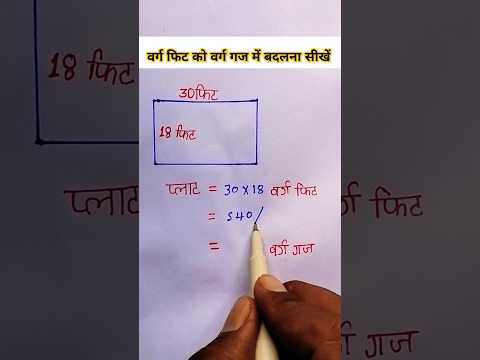 वर्ग फिट को वर्ग गज में बदलना सीखें
18 फिट
30फिट
18 फिट
प्लाट = 30 x 18 वर्ग फिट
= 540/
= वर्ग गज